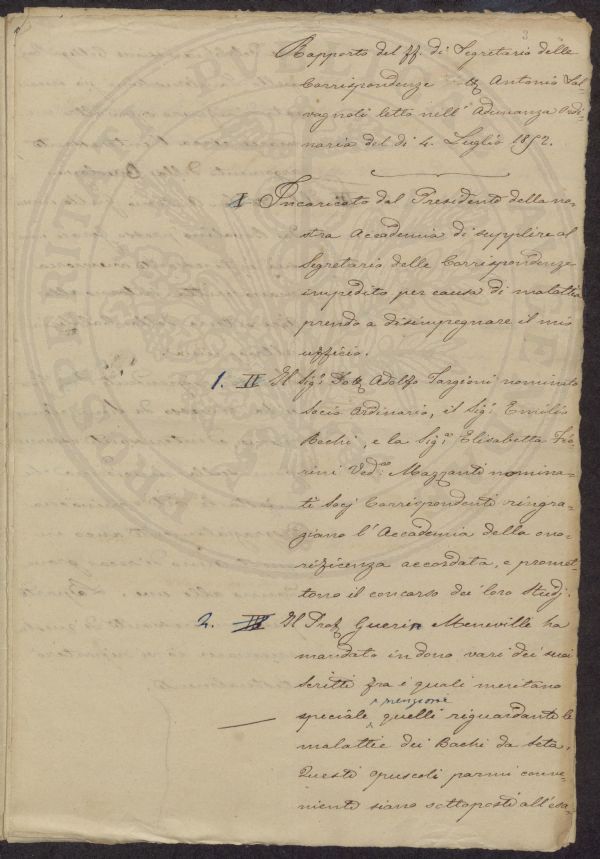 3
Rapporto del ff. di Segretario delle
Corrispondenze Antonio Sal-
vagnoli letto nell'Adunanza Ordi-
naria del dì 4. Luglio 1852.
I Incaricato dal Presidente della no-
stra Accademia di supplire al
Segretario delle Corrispondenze
impedito per causa di malattia
prendo a disimpegnare il mio
ufficio.
1. II Il Sigr. Dott. Adolfo Targioni nominato
Socio Ordinario, il Sigr. Emilio
Bechi, e la Sigra. Elisabetta Fio-
rini Ved.a Mazzanti nomina-
ti Socj Corrispondenti ringra-
ziano l'Accademia della ono-
rificenza accordata, e promet-
tono il concorso dei loro studj.
2. III Il Prof. Guerin Meneville ha
mandato in dono vari dei suoi
scritti fra i quali meritano
menzione
speciale quelli riguardante le
malattie dei Bachi da Seta.
Questi opuscoli parmi conve-
niente siano sottoposti all'esa-